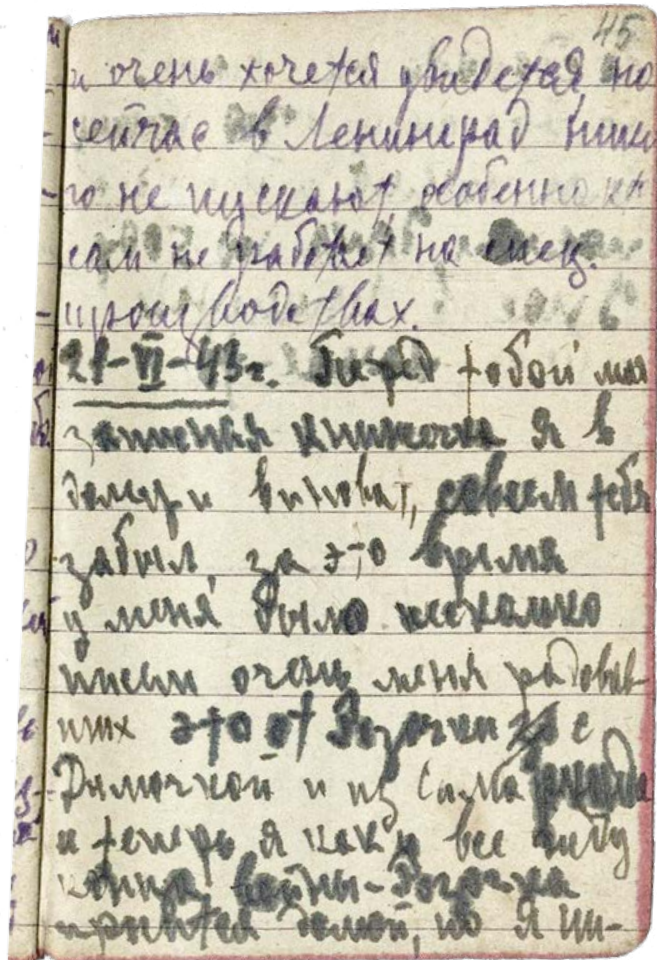 45
и очень хочется увидеться, но
сейчас в Ленинград нико
го не пускают особенно кт
сам не работает на спец.
производствах.
21-VI-43г. Перед тобой моя
записная книжечка я в
долгу и виноват, совсем тебя
забыл, за это время
у меня было несколько
писем очень меня радовав
ших это от Розочки с
Римочкой и из Самарканда
и теперь я как и все жду
конца войны - Розочка
просится домой, но я пи-